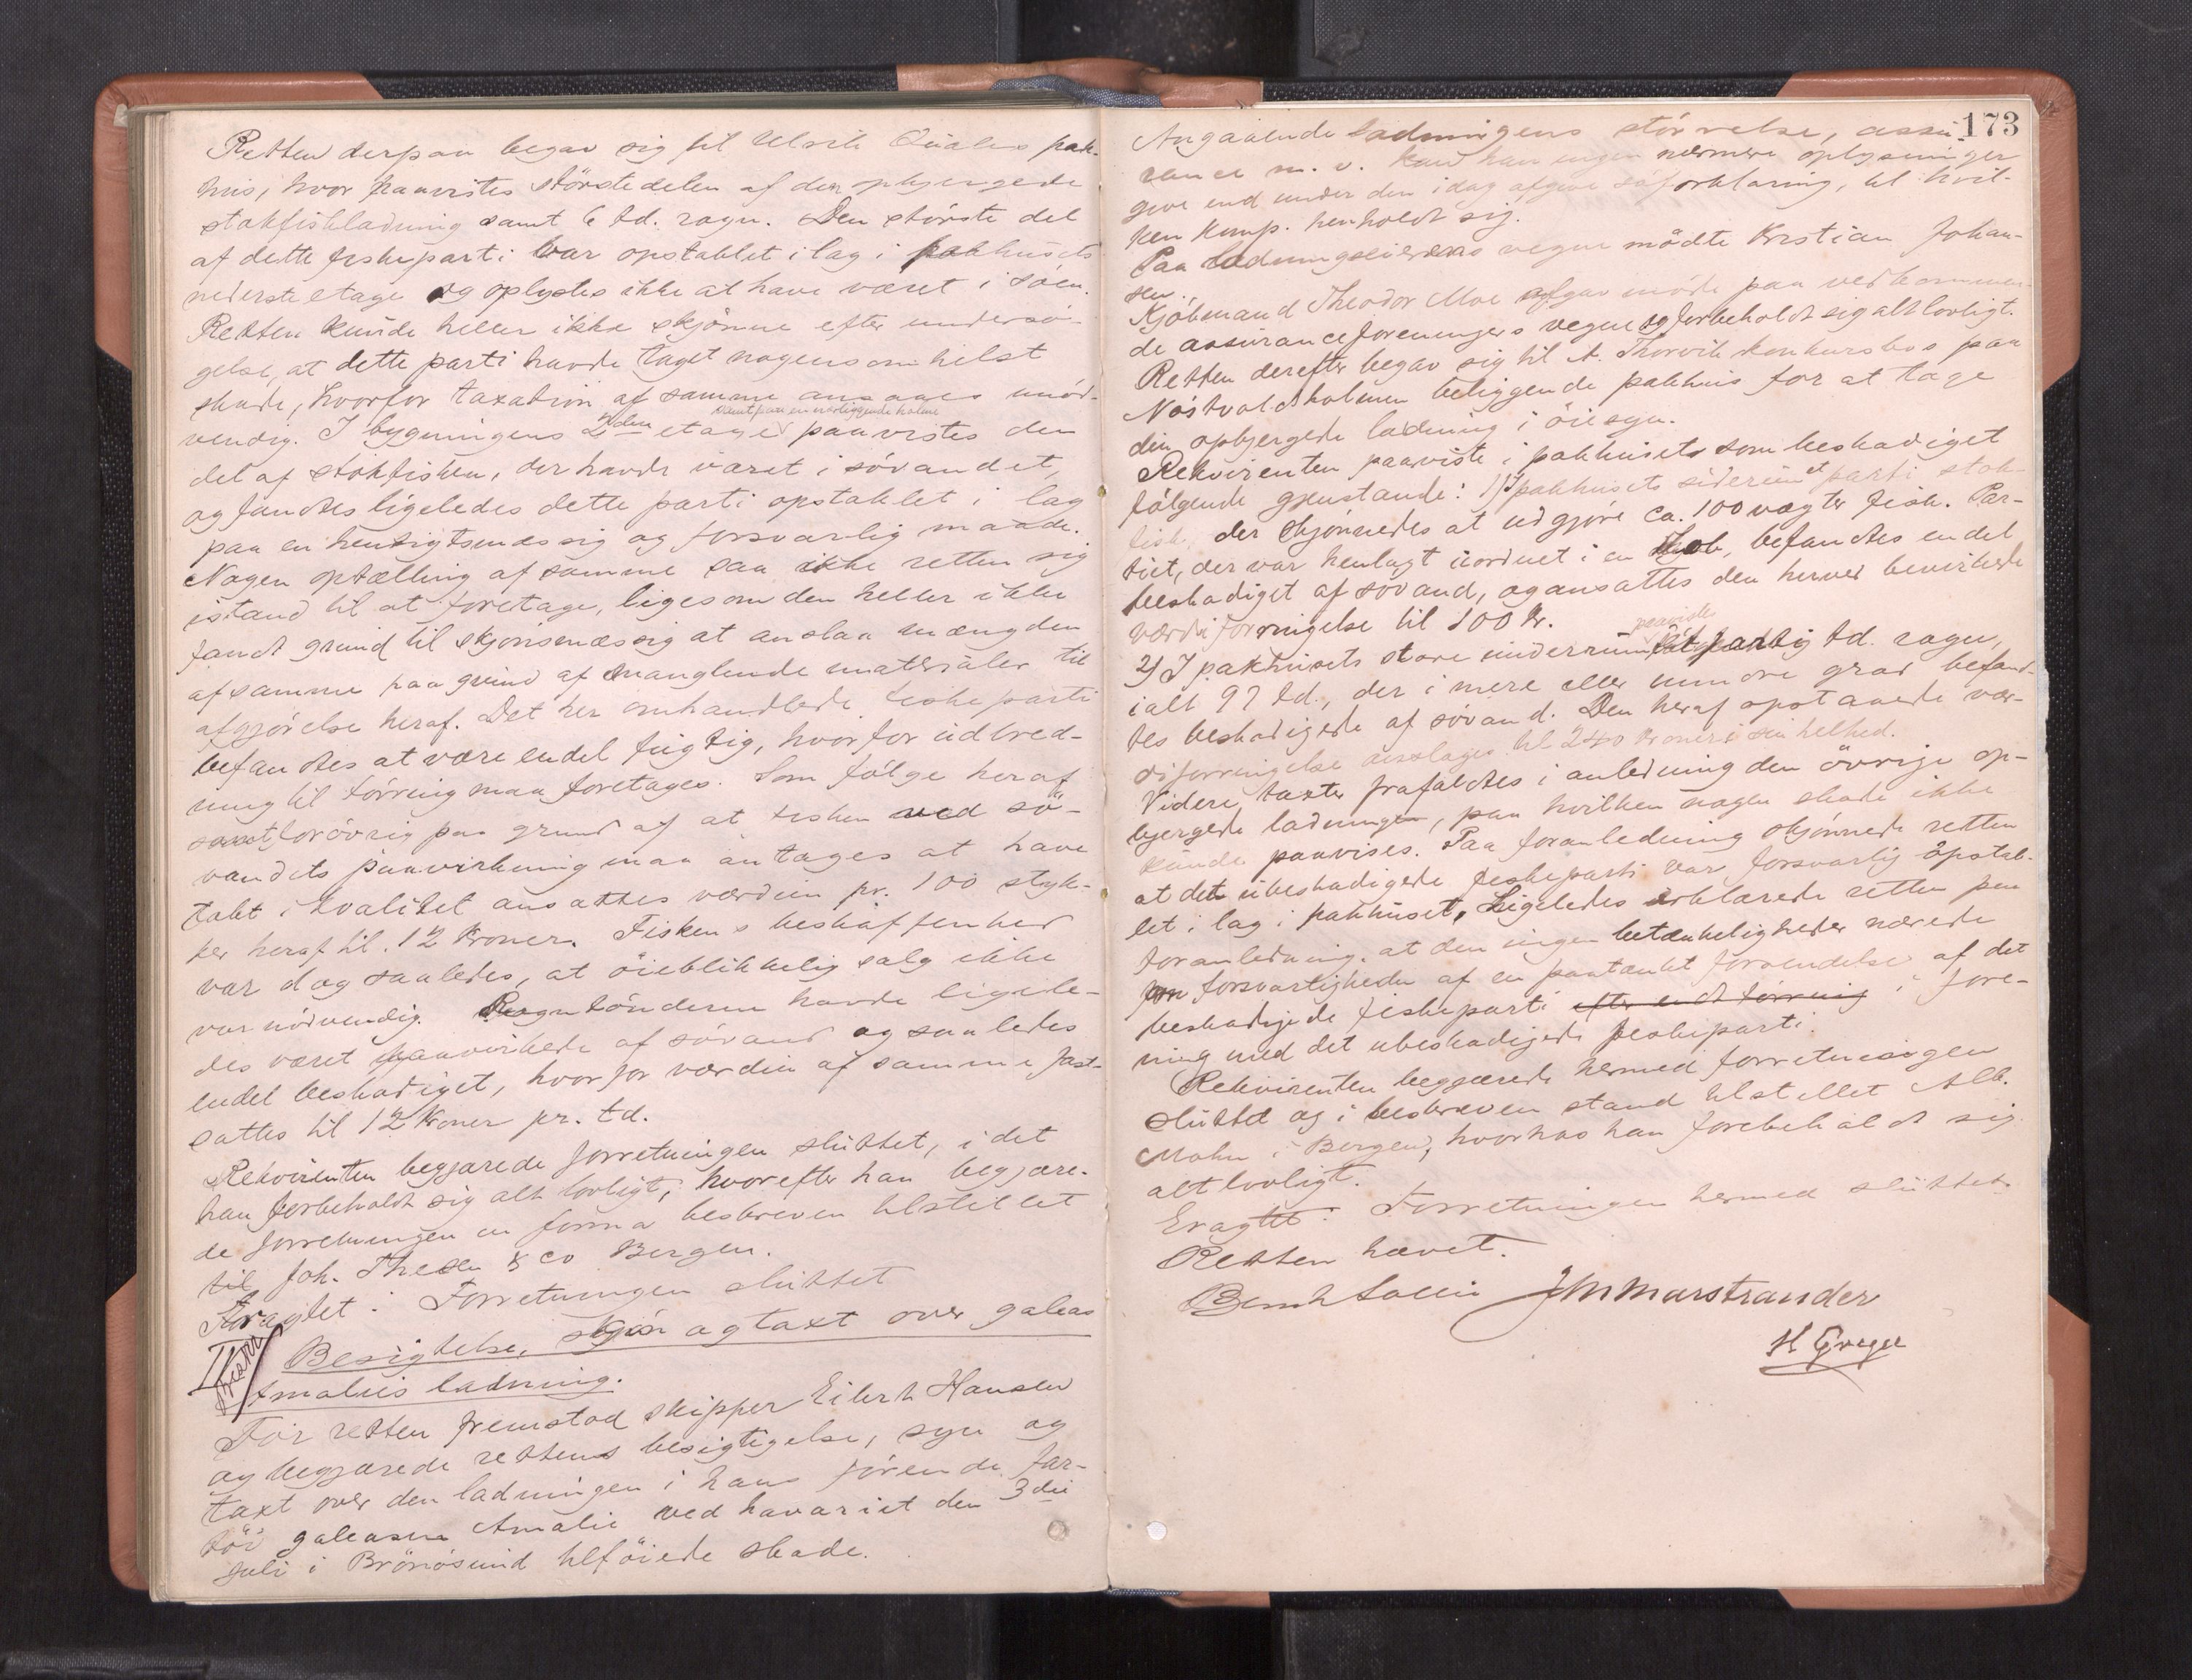 Retten derpaa begav sig til Ulrik Quales pak-
hus, hvor paavistes störstedelen af den opbjergede
stokfiskladning samt 6 td. rogn. Den störste del
af dette fiskeparti var opstablet i lag i pakhusets
nederste etage og oplystes ikke at have været i söen.
Retten kunde heller ikke skjönne efter undersö-
gelse, at dette parti havde taget nogensomhelst
skade, hvorfor taxation af samme ansaaes unöd-
vendig. I bygningens 2den etage samt paa en nærliggende holme paavistes den
del af stokfisken, der havde været i sövandet,
og fandtes ligeledes dette parti opstablet i lag
paa en hensigtsmæssig og forsvarlig maade.
Nogen optælling af samme saa ikke retten sig
istand til at foretage, ligesom den heller ikke
fandt grund til skjönsmæssig at anslaa mængden
af samme paa grund af manglende materialer til
afgjörelse heraf. Det her omhandlede fiskeparti
befandtes at være endel fugtig, hvorfor udbred-
ning til törring maa foretages. Som fölge heraf
samt forövrig paa grund af at fisken ved sö-
vandets paavirkning maa antages at have
tabt i kvalitet ansattes værdien pr. 100 styk-
ker heraf til 12 kroner. Fiskens beskaffenhed
var dog saaledes, at öieblikkelig salg ikke
var nödvendig. Rogntönderne havde ligele-
des været paavirkede af sövand og saaledes
endel beskadiget, hvorfor værdien af samme fast-
sattes til 12 kroner pr. td.
Rekvirenten begjærede forretningen sluttet, idet
han forbeholdt sig alt lovligt, hvorefter han begjære-
de forretningen in forma beskreven tilstillet
til Joh. Thesen & co Bergen.
Eragtet: Forretningen sluttet
II Besigtelse, skjön og taxt over galeas
Amalies ladning.
För retten fremstod skipper Eilert Hansen
og begjærede rettens besigtigelse, syn og
taxt over den ladningen i hans förende far-
töi galeasen Amalie ved havariet den 3die
juli i Brönösund tilföiede skade.
173
Angaaende ladningens störrelse, assu-
rance m. v. kan han ingen nærmere oplysninger
give end under den idag afgivne söforklaring, til hvil-
ken komp. henholdt sig.
Paa ladningseierens vegne mödte Kristian Johan-
sen.
Kjöbmand Theodor Moe afgav möde paa vedkommen-
de assuranceforeningers vegne og forbeholdt sig alt lovligt.
Retten derefter begav sig til A. Thorvik konkursbos paa
Nöstvoldholmen beliggende pakhus for at tage
den opbjergede ladning i öiesyn.
Rekvirenten paaviste i pakhuset som beskadiget
fölgende gjenstande: 1) I pakhusets siderum et parti stok-
fisk, der skjönnedes at udgjöre ca. 100 vægter fisk. Par-
tiet, der var henlagt uordnet i en hob, befandtes endel
beskadiget af sövand, og ansattes den herved bevirkede
værdiforringelse til 100 kr.
2) I pakhusets store underrum paavistes td. rogn,
ialt 97 td., der i mere eller mindre grad befand-
tes beskadigede af sövand. Den heraf opstaaede vær-
diforringelse ansloges til 240 kroner i sin helhed.
Videre taxter frafaldtes i anledning den övrige op-
bjergede ladningen, paa hvilken nogen skade ikke
kunde paavises. Paa foranledning skjönnede retten
at det ubeskadigede fiskeparti var forsvarlig opstab-
let i lag i pakhuset. Ligeledes erklærede retten paa
foranledning, at den ingen betænkeligheder nærede
for forsvarligheden af en paatænkt forsendelse af det
beskadigede fiskeparti efter endt törring i fore-
ning med det ubeskadigede fiskeparti.
Rekvirenten begjærede hermed forretningen
sluttet og i beskreven stand tilstillet Alb.
Mohn i Bergen, hvorhos han forebeholdt sig
alt lovligt.
Eragtet: Forretningen hermed sluttet.
Retten hævet.
JM Marstrander
H Greger